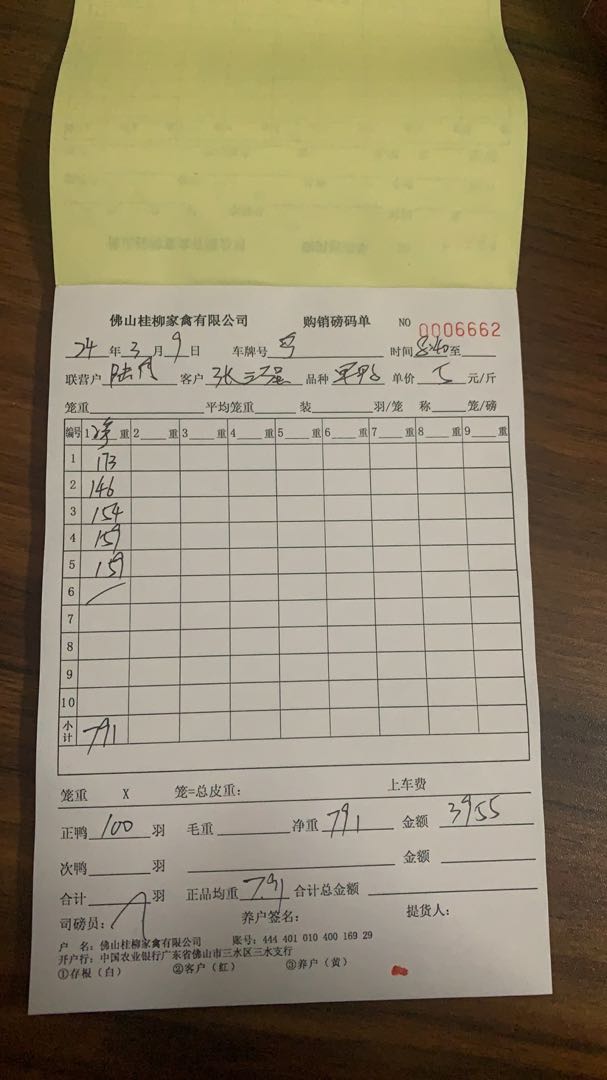 佛山桂柳家禽有限公司 购销磅码单 NO 0006662
24 年 3 月 9 日 车牌号 时间 8:40 至
联营户 陆 客户 张 品种 单价 5 元/斤
笼重 平均笼重 装 羽/笼 称 笼/磅
编号 1 净 重 2 重 3 重 4 重 5 重 6 重 7 重 8 重 9 重
1 173
2 146
3 154
4 159
5 159
6
7
8
9
10
小计 791
笼重 X 笼=总皮重: 上车费
正鸭 100 羽 毛重 净重 791 金额 3955
次鸭 羽 金额
合计 羽 正品均重 7.91 合计总金额
司磅员: 养户签名: 提货人:
户 名: 佛山桂柳家禽有限公司 账号: 444 401 010 400 169 29
开户行: 中国农业银行广东省佛山市三水区三水支行
①存根(白) ②客户(红) ③养户(黄)